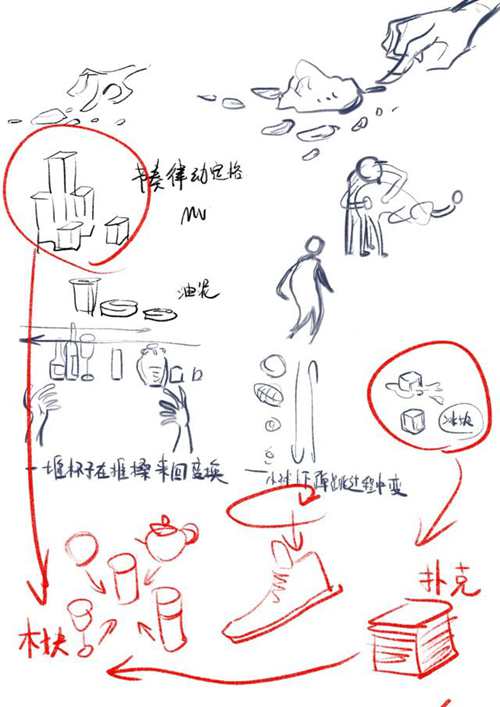 节奏律动定格
油泥
冰块
一堆杯子在推搡来回变换
一小球下弹跳过程中变
扑克
木块